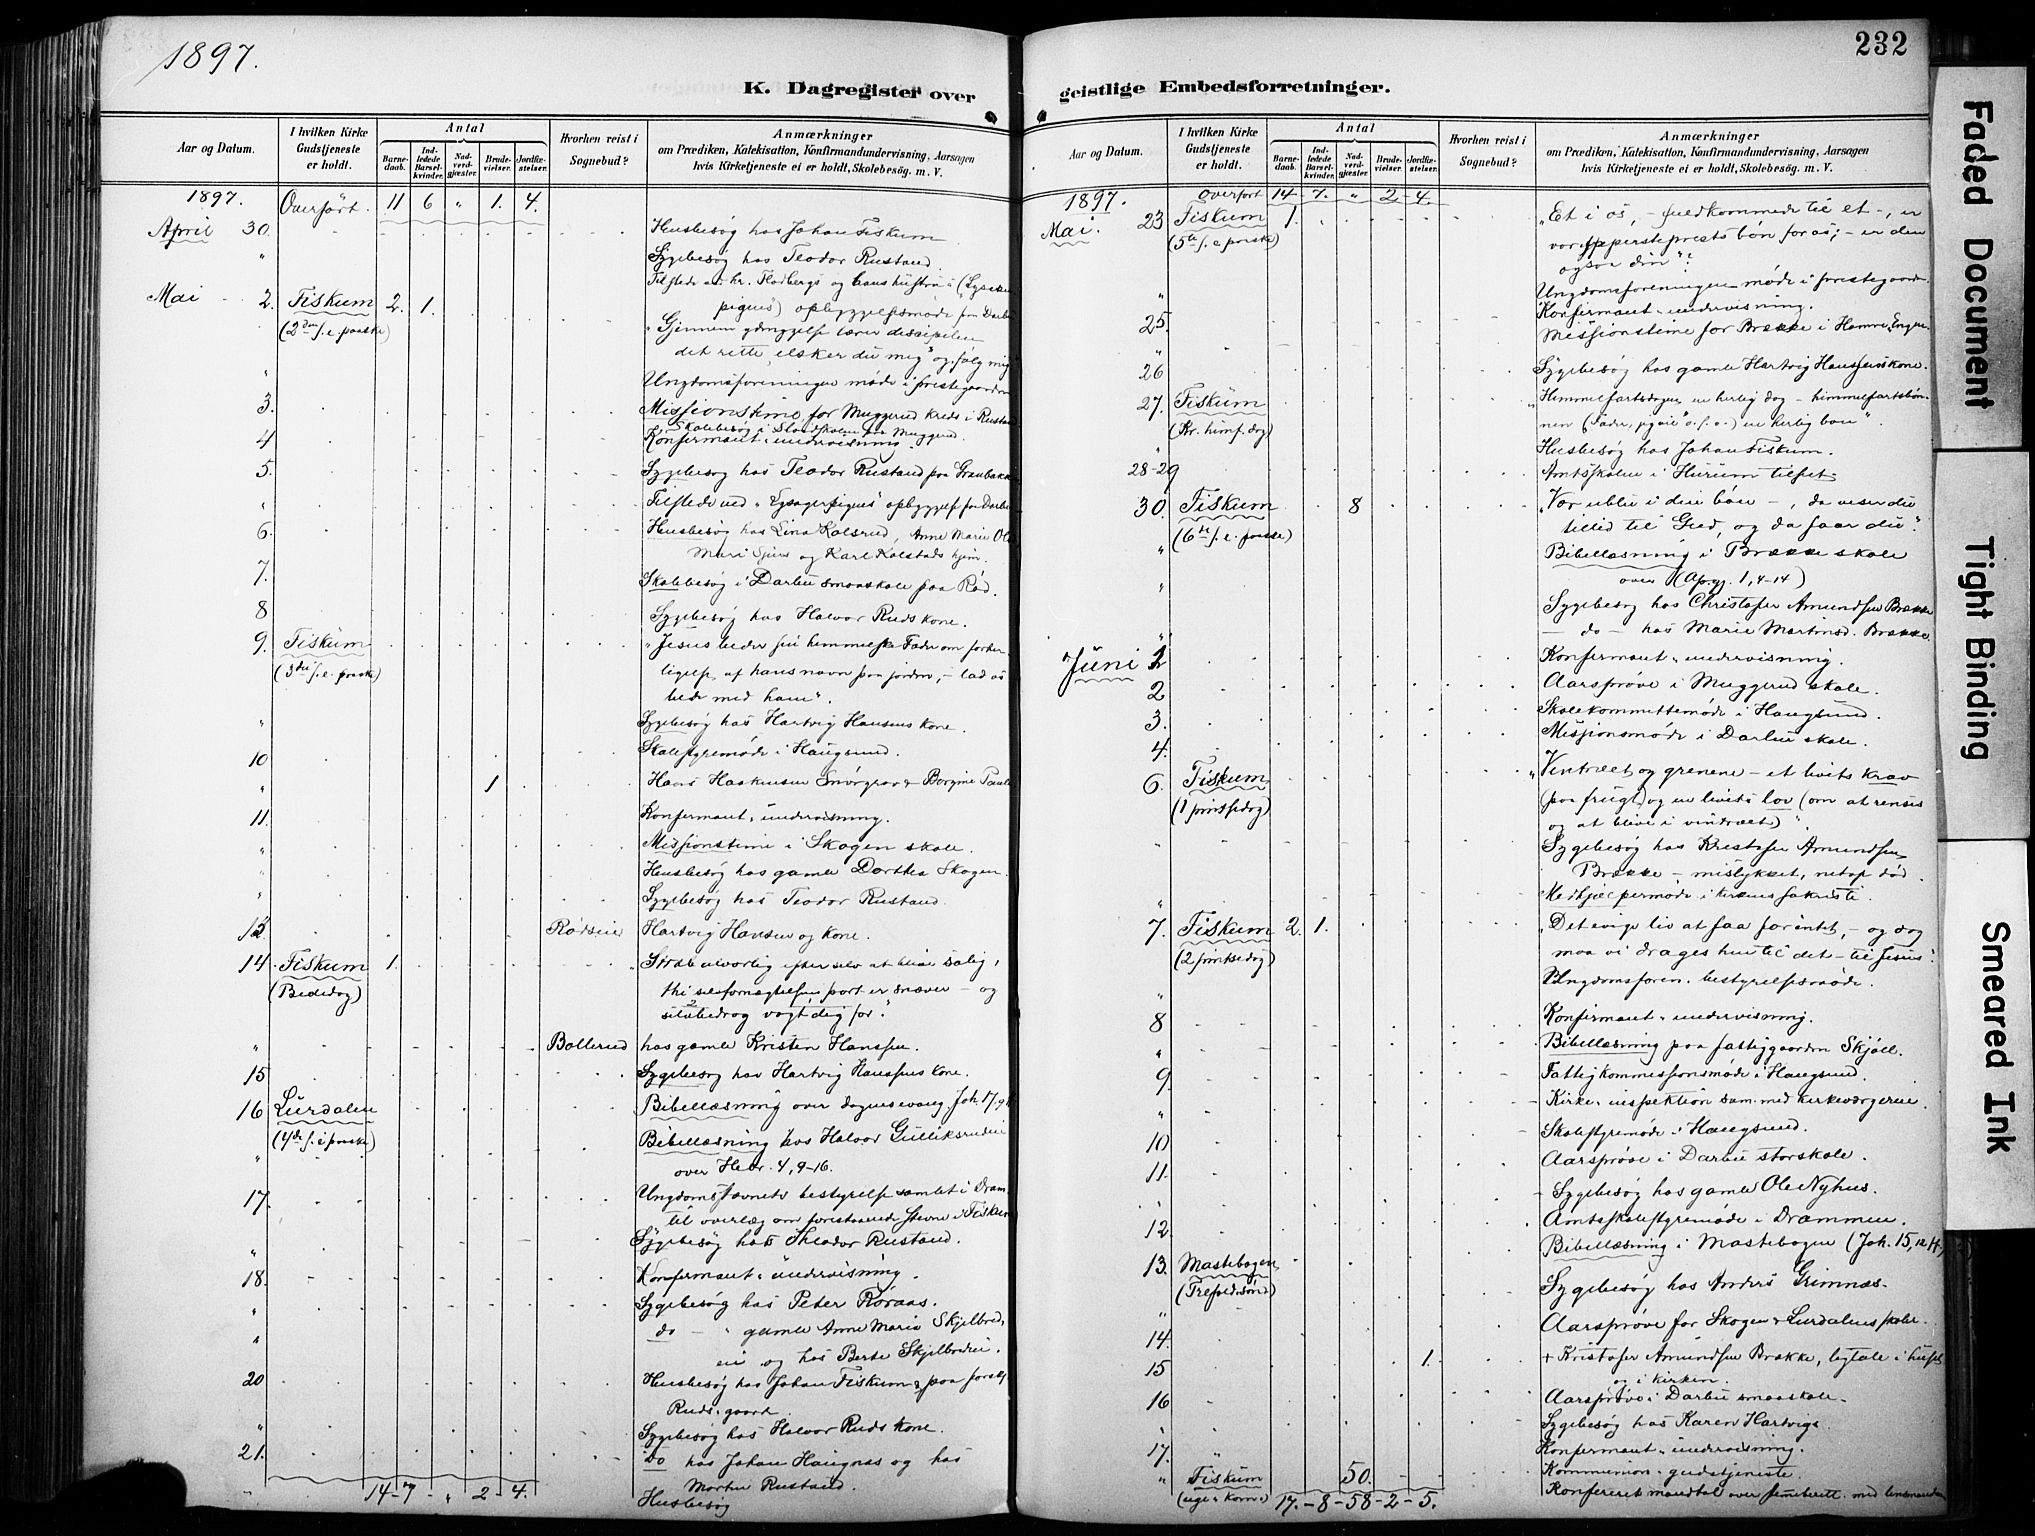 1897.
K. Dagregister over
Aar og Datum.
I hvilken Kirke Gudstjeneste er holdt.
Antal
Barnedaab. Indledede Barselkvinder. Nadverdgjæster. Brudevielser. Jordfæstelser.
Hvorhen reist i Sognebud?
Anmærkninger
om Prædiken, Katekisation, Konfirmandundervisning, Aarsagen
hvis Kirketjeneste ei er holdt, Skolebesøg. m. V.
1897. Overført. 11 6 " 1. 4.
April 30. Husbesøg hos Johan Fiskum
" Sygebesøg hos Teodor Rustand.
Mai 2. Fiskum 2. 1.
(2den s. e. paaske)
opbyggelsesmøde paa Darbu
det rette „elsker du mig" og „følg mig"
" Ungdomsforeningen møde i prestegaarden
3. Missionstime for Muggerud kreds i Rustand
4 Konfirmant-undervisning
5. Sygebesøg hos Teodor Rustand paa
6. Husbesøg hos Lina Kolsrud, Anne Marie
og Karl Kolstads hjem.
7. Skolebesøg i Darbu smaaskole paa Rød.
8 Sygebesøg hos Halvor Ruds kone.
9. Fiskum „Jesus beder sin himmelske Fader om forher-
(3die s. e. paaske) ligelse af hans navn paa jorden, – lad os
bede med ham".
" Sygebesøg hos Hartvig Hansens kone.
10 Skolestyremøde i Haugsund.
" 1 Hans Haakensen Smørgrav & Borgine
11. Konfirmant-undervisning.
" Missionstime i Skogen skole.
" Husbesøg hos gamle Dorthea Skogen.
" Sygebesøg hos Teodor Rustand.
13. Rødseie Hartvig Hansen og kone.
14 Fiskum 1. „Stræb alvorlig efter selv at blive salig,
(Bededag) thi selvfornægtelsens port er snæver – og
selvbedrag vogt dig for".
" Bollerud hos gamle Kristen Hanssen.
15 Sygebesøg hos Hartvig Hanssens kone.
16 Lurdalen Bibellæsning over dagens evang. Joh. 17,
(4de s. e. paaske) Bibellæsning hos Halvor Gulliksrudeie
" over Hebr. 4, 9-16.
17. Ungdomsstævnets bestyrelse samlet i Dram.
til overlæg om forestaaende stevne i Fiskum
" Sygebesøg hos Theodor Rustand.
18. Konfirmant-undervisning.
" Sygebesøg hos Peter Røraas.
" do – " gamle Anne Maria Skjelbred-
eie og hos Berte Skjelbredeie.
20 Husbesøg hos Johan Fiskum & paa
Ruds-gaard.
" Sygebesøg hos Halvor Ruds kone.
21. do hos Johan Haugnæs og hos
Morten Rustand.
14 - 7 - " - 2 - 4. Husbesøg
232
geistlige Embedsforretninger.
Aar og Datum.
I hvilken Kirke Gudstjeneste er holdt.
Antal
Barnedaab. Indledede Barselkvinder. Nadverdgjæster. Brudevielser. Jordfæstelser.
Hvorhen reist i Sognebud?
Anmærkninger
om Prædiken, Katekisation, Konfirmandundervisning, Aarsagen
hvis Kirketjeneste ei er holdt, Skolebesøg. m. V.
1897. Overført 14 - 7. " 2 - 4.
Mai. 23 Fiskum 1. „Et i os, – fuldkommede til et –, er
(5te s. e. paaske) vor yppersteprests bøn for os; – er den
ogsaa din"?
" Ungdomsforeningen møde i prestegaarden
25. Konfirmant-undervisning.
" Missionstime for Brække i
26 Sygebesøg hos gamle Hartvig Hanssens kone.
27. Fiskum „Himmelfartsdagen en herlig dag – himmelfartsbøn-
(Kr. himf. dag) nen en herlig bøn".
" Husbesøg hos Johan Fiskum.
28-29 Amtsskolen i Hurum tilset.
30. Fiskum 8 „Vær ublu i din bøn –, da viser du
(6te s. e. paaske) tillid til Gud, og da faar du".
" Bibellæsning i Brække skole
over (Ap.gj. 1, 4-14)
" Sygebesøg hos Christofer Amundsen Brække
" – do – hos Marie Martinsd. Brække.
Juni 1 Konfirmant-undervisning.
2 Aarsprøve i Muggerud skole.
3. Skolekommittemøde i Haugsund.
4. Missionsmøde i Darbu skole.
6. Fiskum „Vintræet og grenene – et livets krav
(1 pintsedag) (paa frugt) og en livets lov (om at renses
og at blive i vintræet)".
" Sygebesøg hos Kristofer Amundsen
Brække – mislykket, netop død.
" Medhjælpermøde i kirkens sakristi.
7. Fiskum 2. 1. „Det evige liv at faa for intet, – og dog
(2 pintsedag) maa vi drages hen til det – til Jesus".
" Ungdomsforen. bestyrelsesmøde.
8 Konfirmant-undervisning.
" Bibellæsning paa fattiggaarden Skjøll.
9. Fattigkommissionsmøde i Haugsund.
" Kirke-inspektion sam. med kirkeværgerne.
10 Skolestyremøde i Haugsund.
11. Aarsprøve i Darbu storskole.
" Sygebesøg hos gamle Ole Nyhus.
12 Amtsskolestyremøde i Drammen.
13. Mastebogen Bibellæsning i Mastebogen (Joh. 15,
(Trefold. sønd) Sygebesøg hos Anders Grimnæs.
14. Aarsprøve for Skogen & Lurdalens skole.
15 1. + Kristofer Amundsen Brække, ligtale i huset
og i kirken.
16 Aarsprøve i Darbu smaaskole.
Sygebesøg hos Karen Hartvigs.
17. Konfirmant-undervisning.
" Fiskum 50. Kommunion-gudstjeneste.
(uge-kom.) 17. - 8 - 58 - 2 - 5.
Faded Document
Tight Binding
Smeared Ink